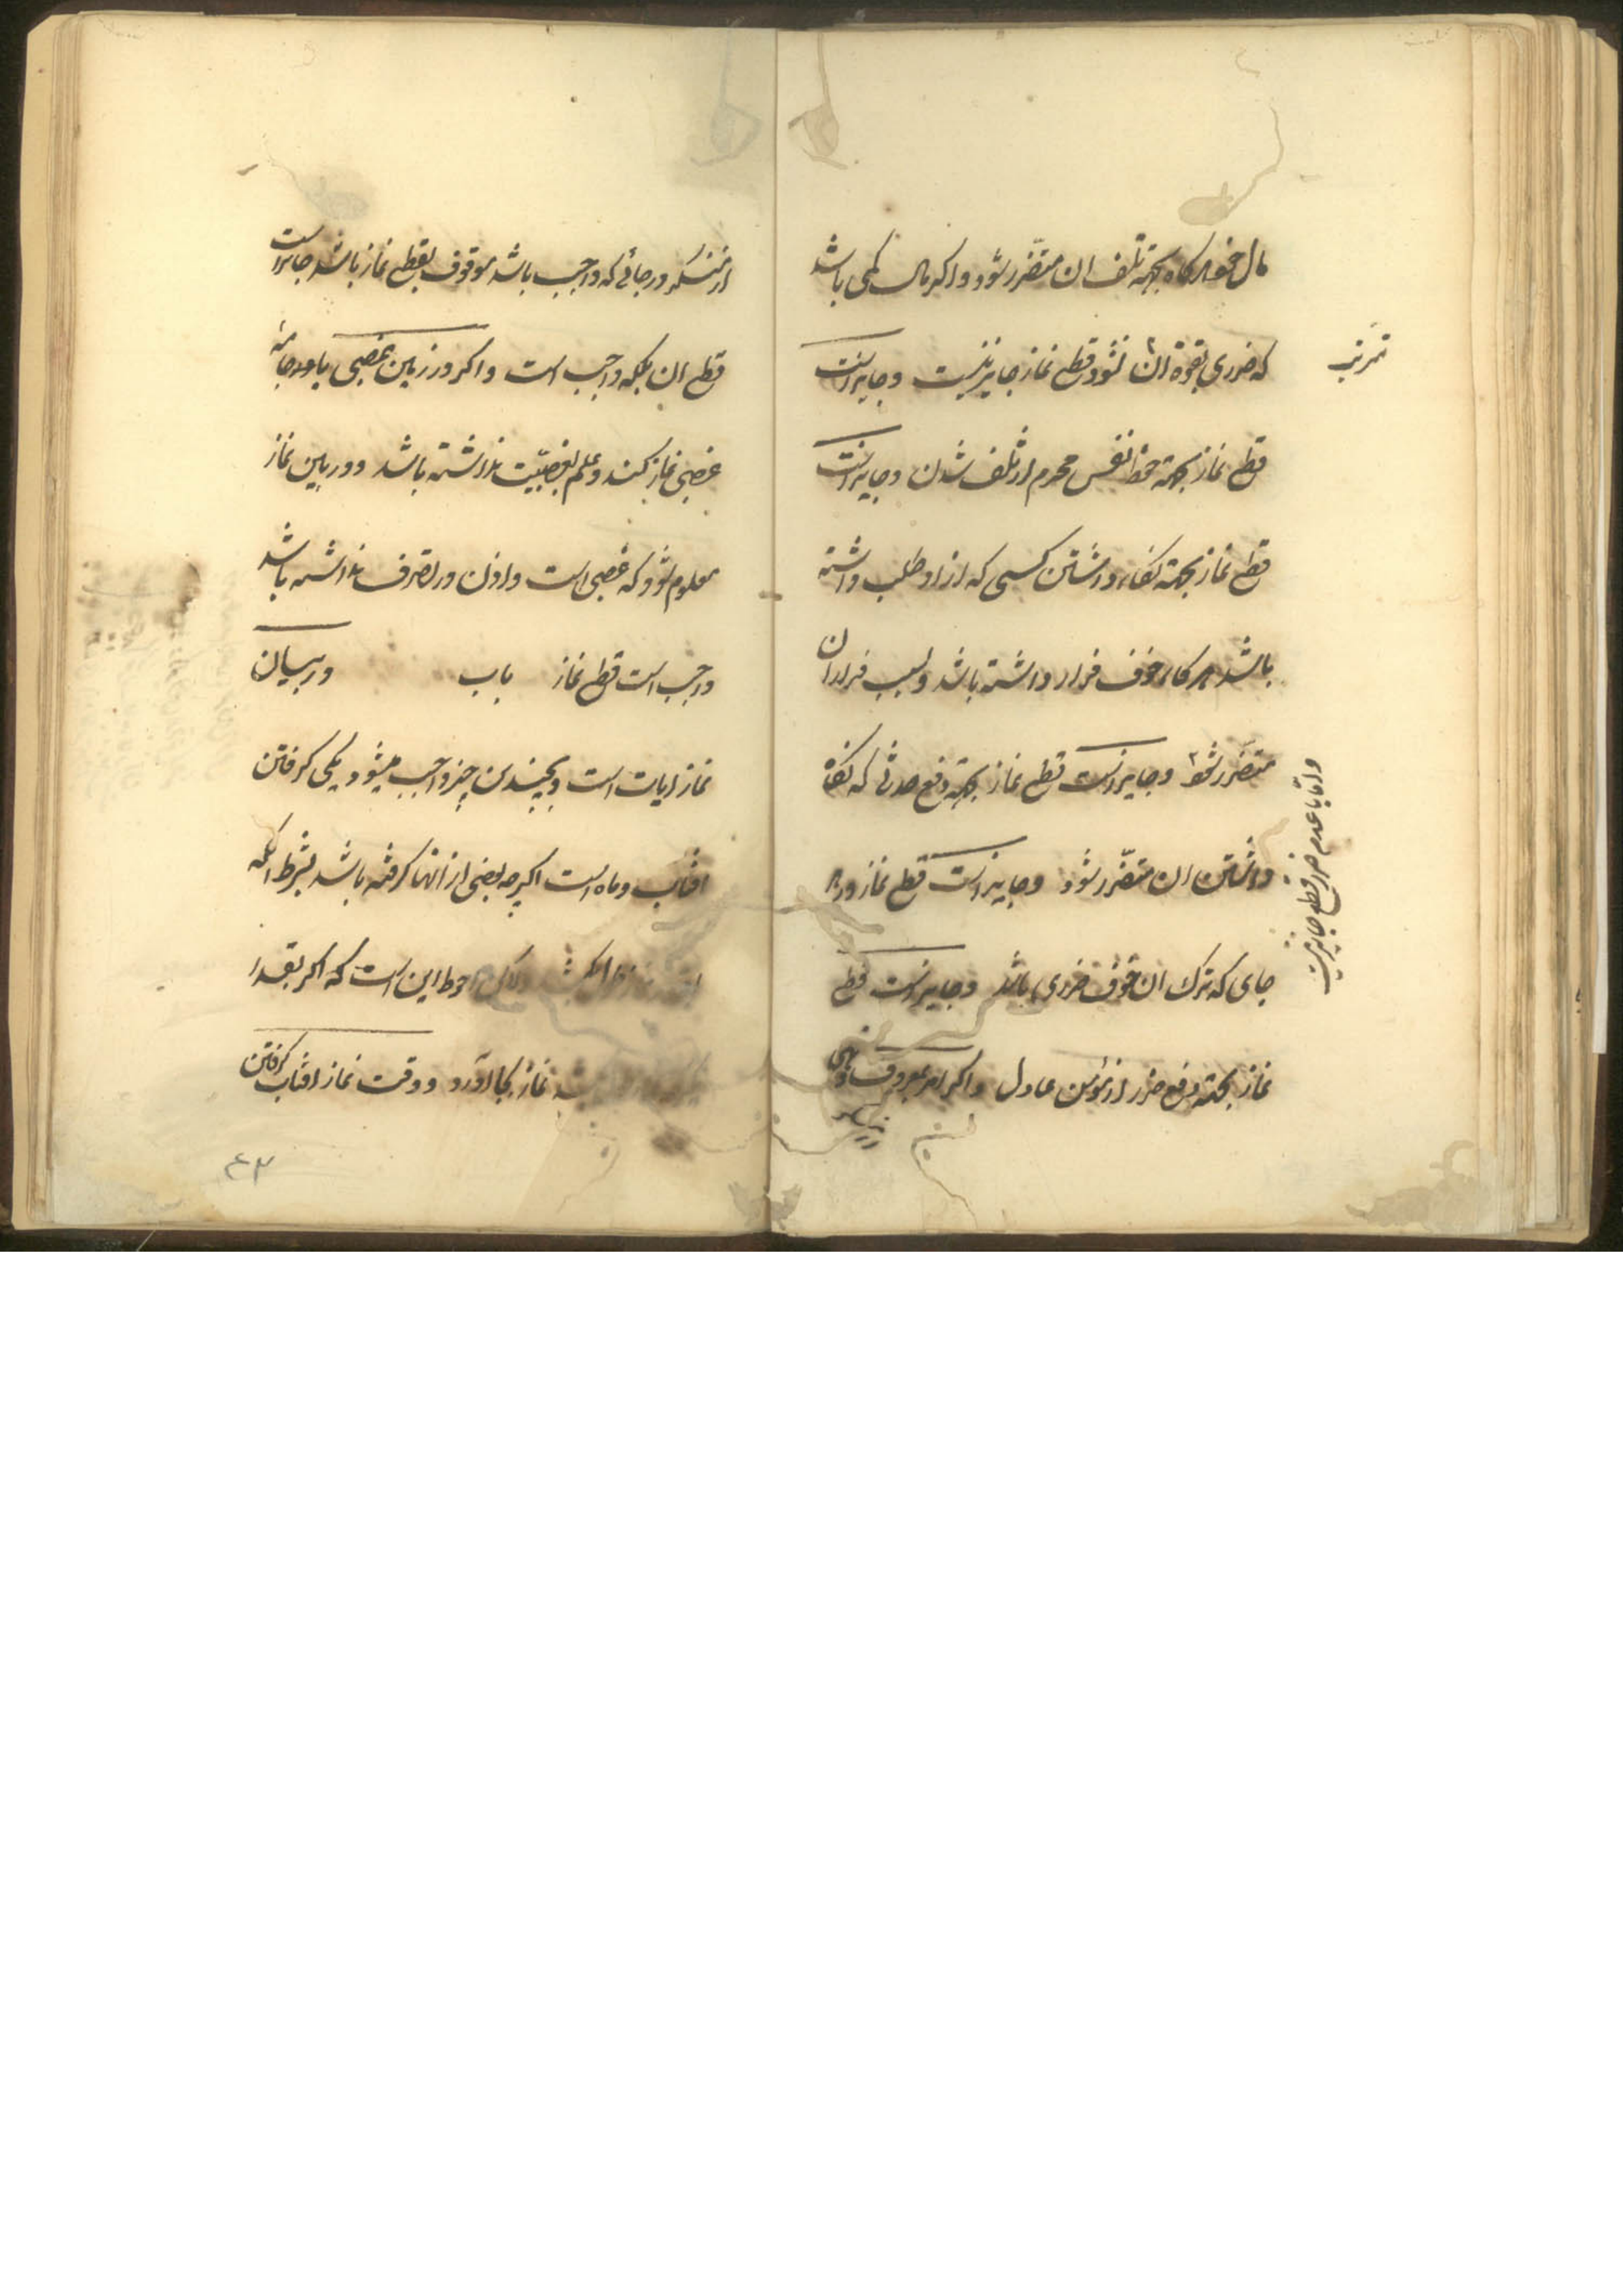 مال خود هرگاه بجهته تلف ان متضرر شود و اگر مال کمی باشد
که ضرری بفوة ان نشود قطع نماز جایز نیست و جایز است
قطع نماز بجهته حفظ نفس محرم از تلف شدن و جایز است
قطع نماز بجهته نگاه داشتن کسی که از او طلب داشته
باشد هرگاه خوف فرار داشته باشد و بسبب فرار ان
متضرر شود و جایز است قطع نماز بجهته دفع حدثی که نگاه
داشتن ان متضرر شود و جایز است قطع نماز در هر
جای که ترک ان خوف ضرری باشد و جایز است قطع
نماز بجهته دفع ضرر از مؤمن عادل و اگر امر بمعروف و نهی
واما با عدم ضرر قطع جایز نیست
از منکر در جائی که واجب باشد موقوف بقطع نماز باشد جایز است
قطع ان بلکه واجب است و اگر در زمین غصبی یا در جامه
غصبی نماز کند و علم بغصبیّت نداشته باشد و در بین نماز
معلوم شود که غصبی است و اذن در تصرف نداشته باشد
واجب است قطع نماز باب در بیان
نماز ایات است و بچندین چیز واجب میشود یکی گرفتن
افتاب و ماه است اگرچه بعضی از انها گرفته باشد بشرط انکه
احوط این است که اگر بقدر
نماز بجا آورد و وقت نماز افتاب گرفتن
۴۳